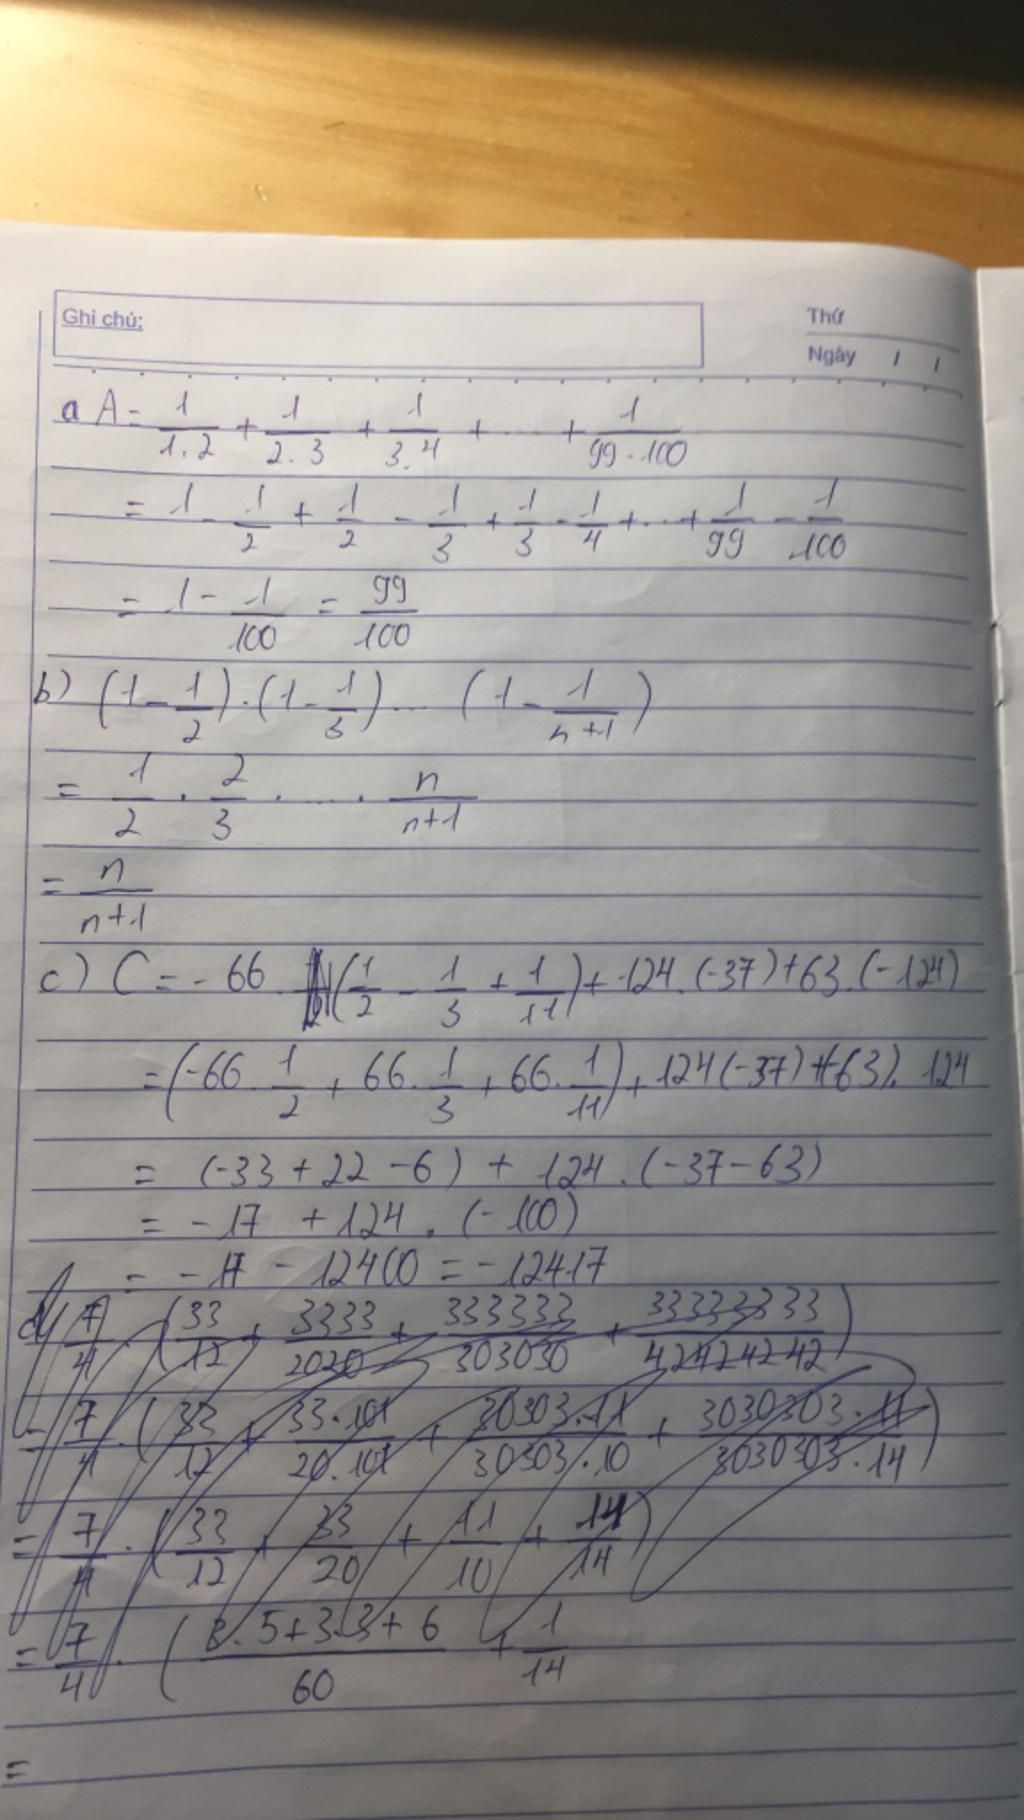 Ghi chú:
Thứ
Ngày / /
a A = 1/1.2 + 1/2.3 + 1/3.4 + .... + 1/99.100
= 1 - 1/2 + 1/2 - 1/3 + 1/3 - 1/4 + ... + 1/99 - 1/100
= 1 - 1/100 = 99/100
b) (1 - 1/2) . (1 - 1/3) ... (1 - 1/n+1)
= 1/2 . 2/3 . .... . n/n+1
= n/n+1
c) C = - 66 . (1/2 - 1/3 + 1/11) + 124 . (-37) + 63 . (-124)
= (-66 . 1/2 + 66 . 1/3 + 66 . 1/11) + 124 (-37) + (-63) . 124
= (-33 + 22 - 6) + 124 . (-37 - 63)
= - 17 + 124 . (-100)
= - 17 - 12400 = -12417
d) 7/4 . (33/12 + 3333/2020 + 333333/303030 + 33333333/42424242)
= 7/4 . (33/12 + 33.101/20.101 + 30303.11/30303.10 + 3030303.11/3030303.14)
= 7/4 . (33/12 + 33/20 + 11/10 + 14/14)
= 7/4 . (3.5+3.3+6/60 + 1/14
=